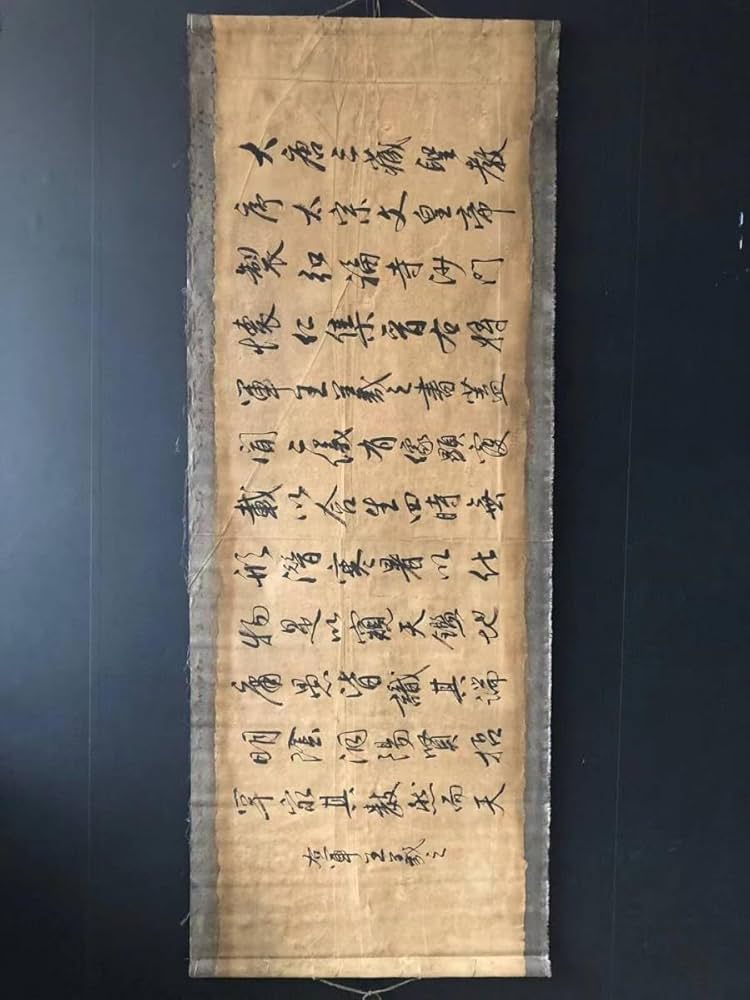 大唐三藏聖教
序太宗文皇帝
製弘福寺沙門
懷仁集晉右將
軍王羲之書蓋
聞二儀有像顯覆
載以含生四時無
形潛寒暑以化
物是以窺天鑑地
庸愚皆識其端
明陰洞陽賢哲
罕窮其數然而天
右軍王羲之